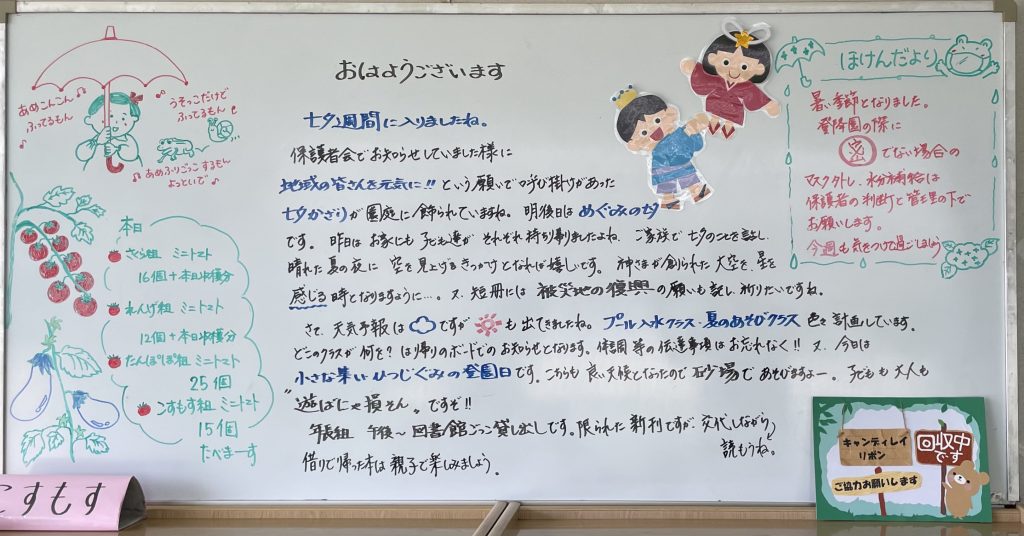 おはようございます
七夕週間に入りましたね。
保護者会でお知らせしていました様に
地域の皆さんを元気に!! という願いでの呼び掛けがあった
七夕かざりが園庭に飾られていますね。明後日はめぐみの夕
です。昨日はお家にも子ども達がそれぞれ持ち帰りましたよね。ご家族で七夕のことを話し、
晴れた夏の夜に 空を見上げるきっかけとなれば嬉しいです。神さまが創られた大空を、星を
感じる時となりますように…。又、短冊には 被災地の復興の願いも託し、祈りたいですね。
さて、天気予報は ですが も出てきましたね。プール入水クラス・夏のあそびクラス 色々計画しています。
どこのクラスが何を? は帰りのボードでのお知らせとなります。体調等の伝達事項はお忘れなく!! 又、今日は
小さな集い ひつじぐみの登園日です。こちらも良い天候となったので 砂場であそびますよー。子どもも大人も
"遊ばにゃ損そん"ですぞ!!
年長組 午後〜図書館ごっこ貸し出しです。限られた新刊ですが、交代しながら
読もうね。
借りて帰った本は親子で楽しみましょう。
あめこんこん
ふってるもん
うそっこだけど
ふってるもん
あめふりごっこするもん
よっといで
本日
さくら組 ミニトマト
16個+本日収穫分
れんげ組 ミニトマト
12個+本日収穫分
たんぽぽ組 ミニトマト
25個
こすもす組 ミニトマト
15個
たべまーす
ほけんだより
暑い季節となりました。
登降園の際に
密でない場合の
マスク外し、水分補給は
保護者の判断と管理の下で
お願いします。
今週も気をつけて過ごしましょう
キャンディレイ
リボン
回収中
です
ご協力お願いします
こすもす